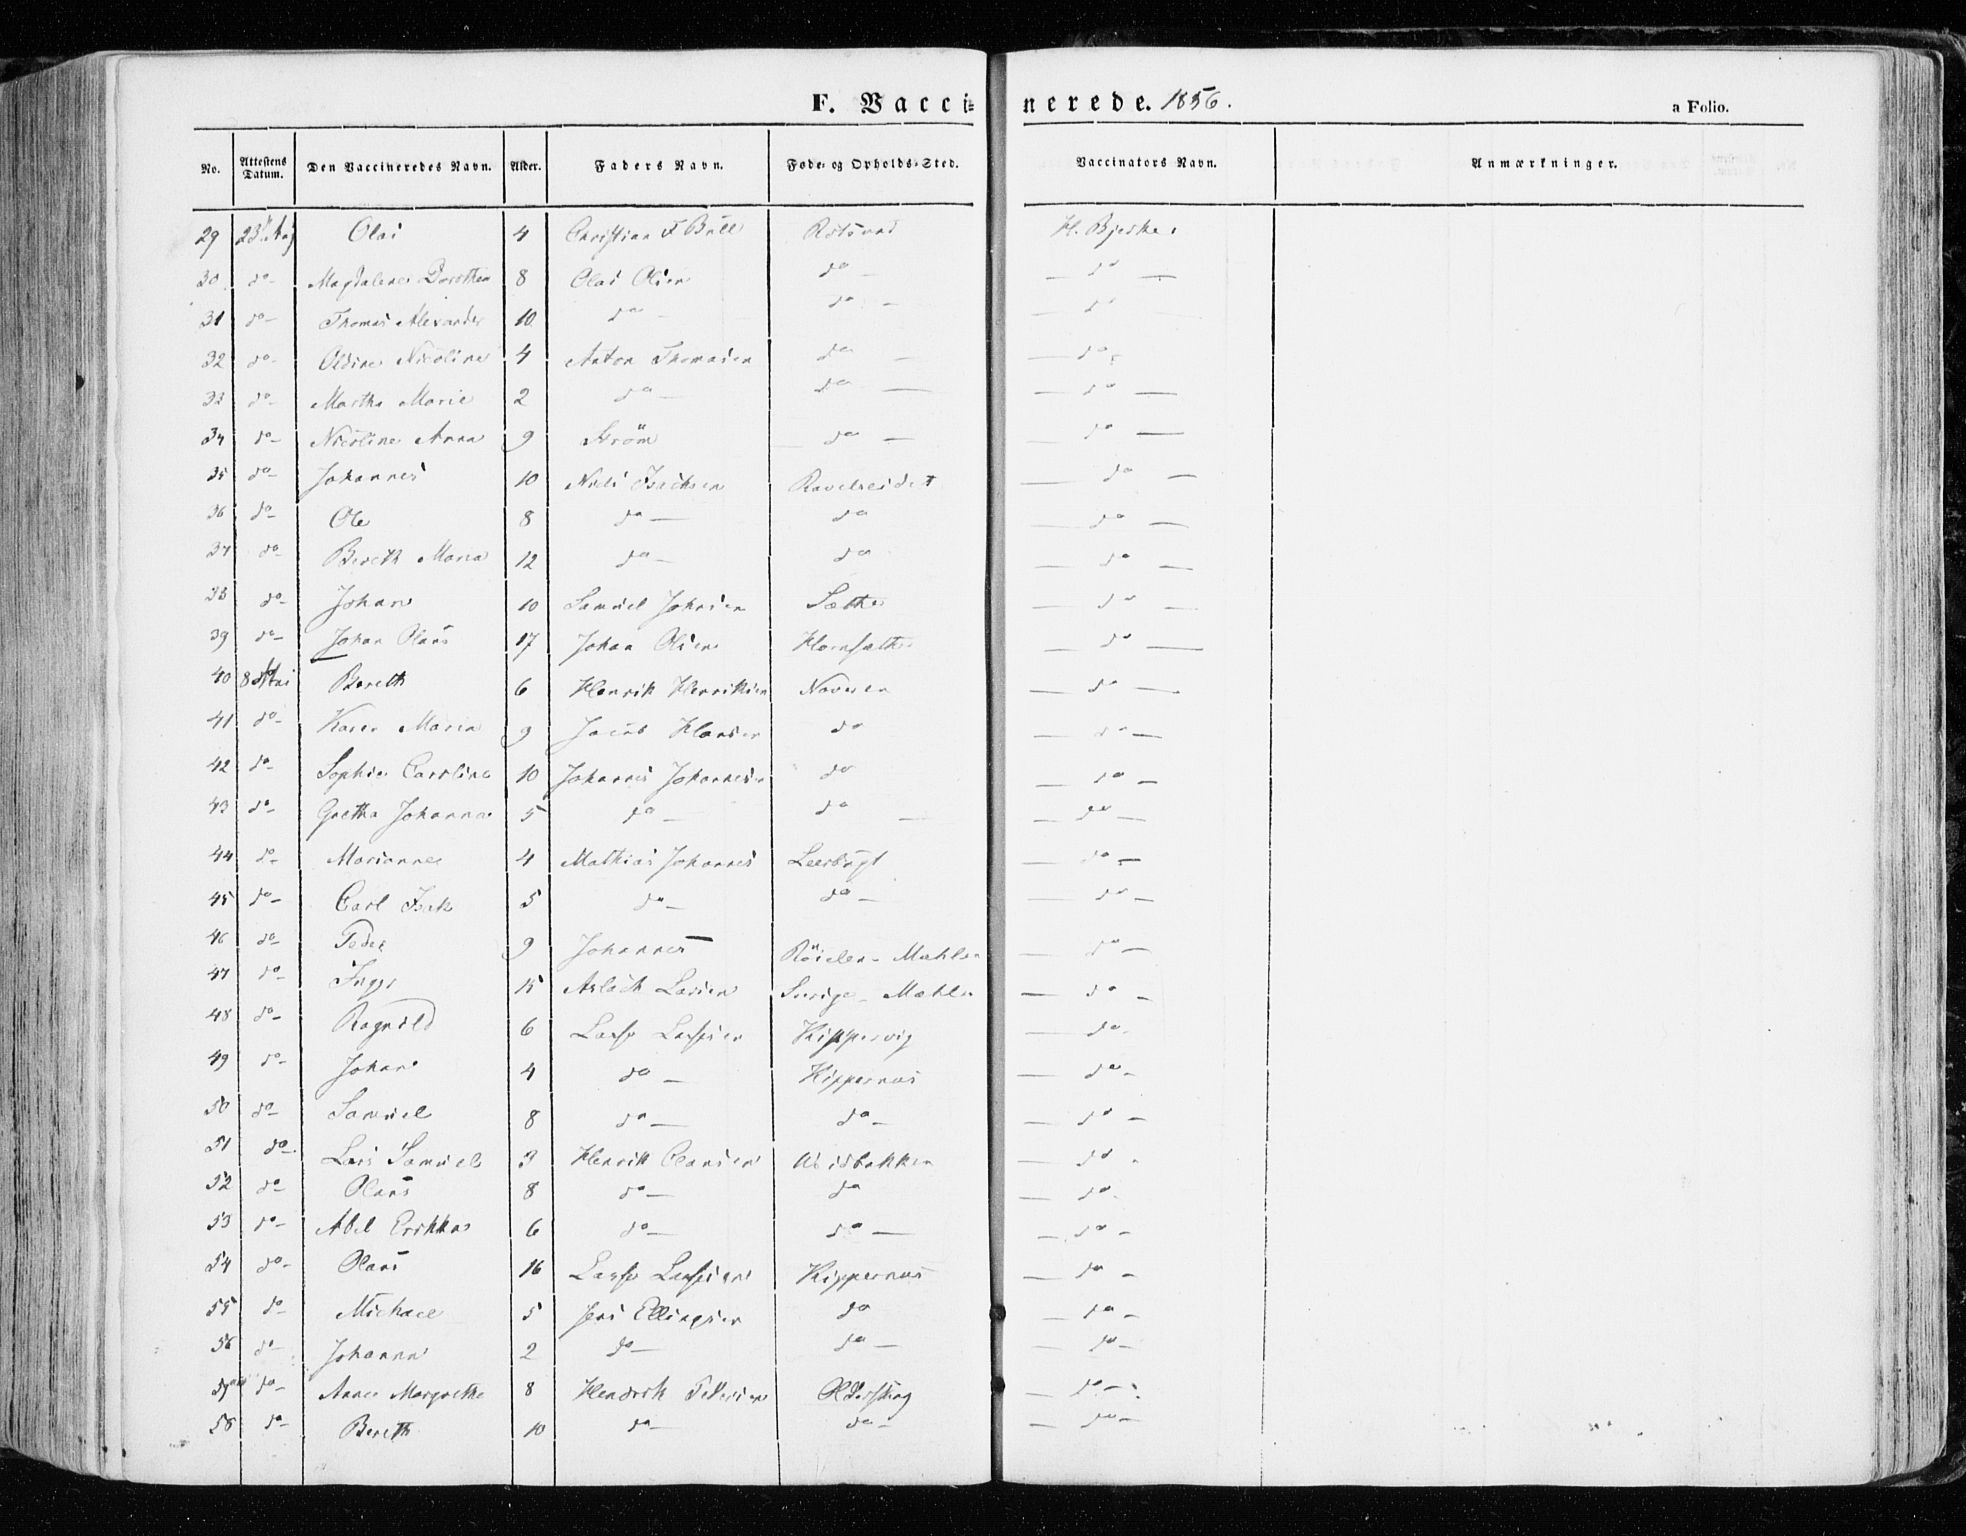 F. Vaccinerede. 1856. a Folio.
No. Attestens Datum. Den Vaccineredes Navn. Alder. Faders Navn. Føde- og Opholds-Sted. Vaccinators Navn. Anmærkninger.
29 23 Olai 4 Christian F Bull H. Bjerke
30 do Magdalene Dorothea 8 Olai Olsen do do
31 do Thomas Alexander 10 do do do
32 do Oldine Nicoline 4 Anton Thomasen do do
33 do Martha Marie 2 do do do
34 do Nicoline Anna 9 Strøm do do
35 do Johannes 10 Niels Isachsen Ravelseidet do
36 do Ole 8 do do do
37 do Bereth Maria 12 do do do
38 do Johan 10 Samuel Johnsen Sæther do
39 do Johan Olaus 17 Johan Olsen do
40 8 Mai Bereth 6 Henrik Henriksen Naveren do
41 do Karen Maria 9 Jacob Hansen do do
42 do Sophie Caroline 10 Johannes Johannesen do do
43 do Grethe Johanna 5 do do do
44 do Marianne 4 Mathias Johannes Leerbugt do
45 do Carl Isak 5 do do do
46 do Peder 9 Johannes do
47 do Inger 15 Aslach Larsen Sverige do
48 do Ragnild 6 Lasse Lassesen Kippervig do
49 do Johan 4 do Kippernes do
50 do Samuel 8 do do do
51 do Lars Samuel 3 Henrik Clausen do
52 do Olaus 8 do do do
53 do Abel Erikka 6 do do do
54 do Olaus 16 Lasse Lassesen Kippernes do
55 do Michael 5 Jens Ellingsen do do
56 do Johanna 2 do do do
57 do Anne Margrethe 8 Hendrik Pedersen Olderskog do
58 do Bereth 10 do do do